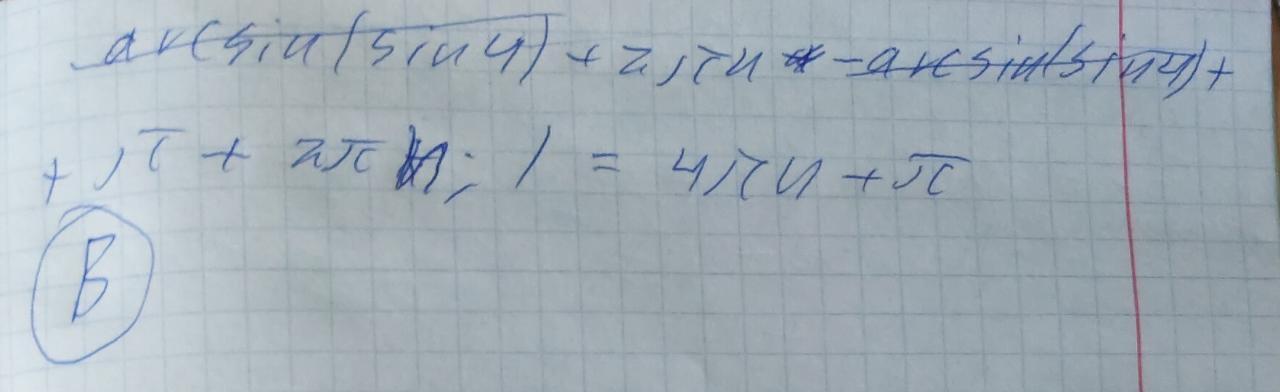 arcsin(sin 4) + 2πn - arcsin(sin 4) +
+ π + 2πn; | = 4πn + π
B